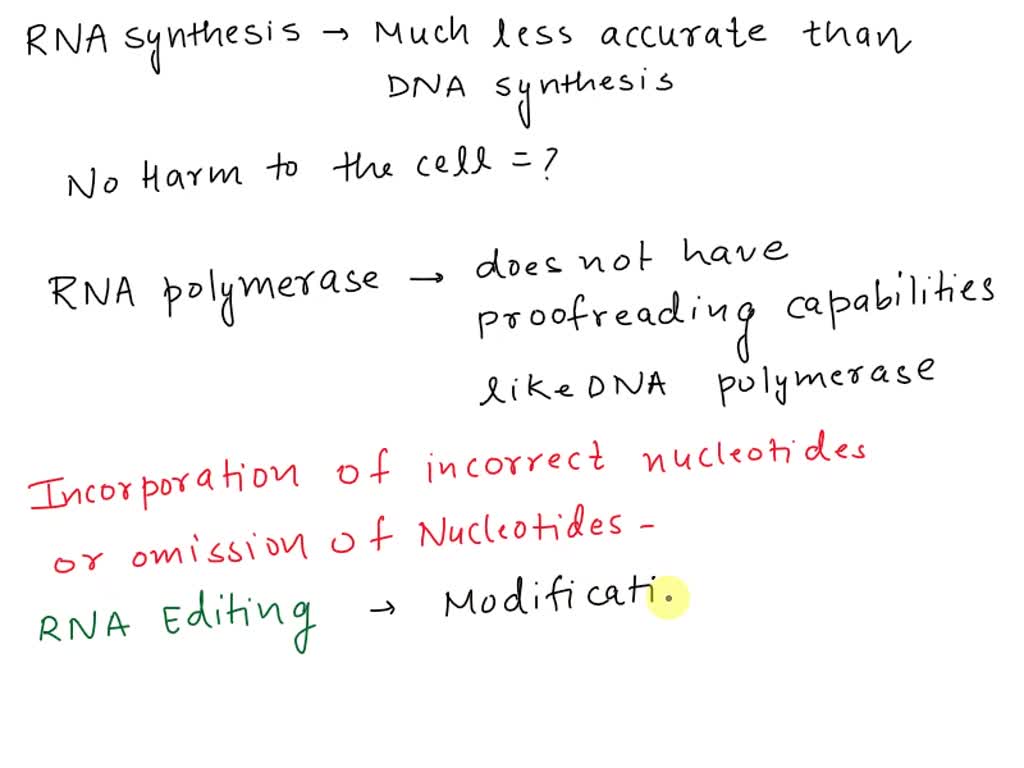 RNA synthesis → Much less accurate than
DNA synthesis
No Harm to the cell = ?
RNA polymerase → does not have
proofreading capabilities
like DNA polymerase
Incorporation of incorrect nucleotides
or omission of Nucleotides -
RNA Editing → Modificati